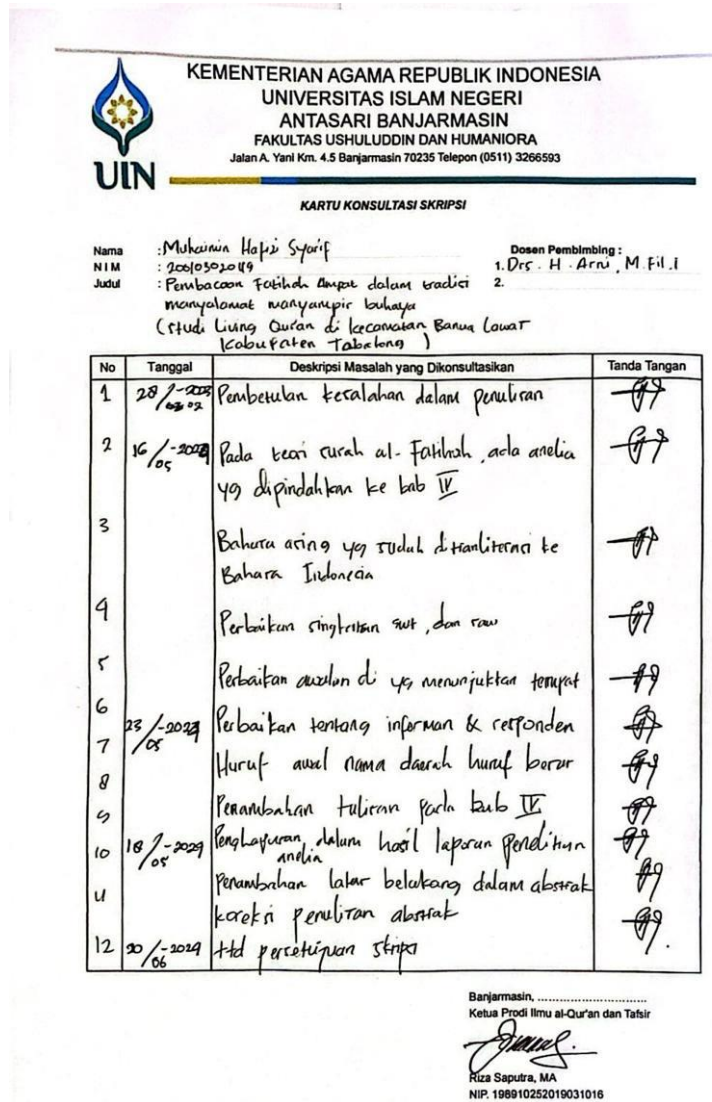 KEMENTERIAN AGAMA REPUBLIK INDONESIA
UNIVERSITAS ISLAM NEGERI
ANTASARI BANJARMASIN
FAKULTAS USHULUDDIN DAN HUMANIORA
Jalan A. Yani Km. 4.5 Banjarmasin 70235 Telepon (0511) 3266593
UIN
KARTU KONSULTASI SKRIPSI
Nama : Muhaimin Hafizi Syarif
NIM :
Judul : Pembacaan Fatihah Ampat dalam tradisi
manyalamat manyampir buhaya
(Studi Living Qur'an di kecamatan Banua Lawas
Kabupaten Tabalong)
Dosen Pembimbing :
1. Drs. H. Arni, M.Fil.I
2.
No Tanggal Deskripsi Masalah yang Dikonsultasikan Tanda Tangan
1 Pembetulan kesalahan dalam penulisan
2 16/05-2024 Pada teori surah al-Fatihah, ada analisa
yg dipindahkan ke bab IV
3 Bahasa asing yg sudah ditransliterasi ke
Bahasa Indonesia
4 Perbaikan singkatan swt, dan saw
5 Perbaikan awalan di yg menunjukkan tempat
6 23/05-2024 Perbaikan tentang informan & responden
7 Huruf awal nama daerah huruf besar
8
9 Penambahan tulisan pada bab IV
10 Penghapusan analisa dalam hasil laporan penelitian
11 Penambahan latar belakang dalam abstrak
koreksi penulisan abstrak
12 ttd persetujuan skripsi
Banjarmasin, ..............................
Ketua Prodi Ilmu al-Qur'an dan Tafsir
Riza Saputra, MA
NIP. 198910252019031016